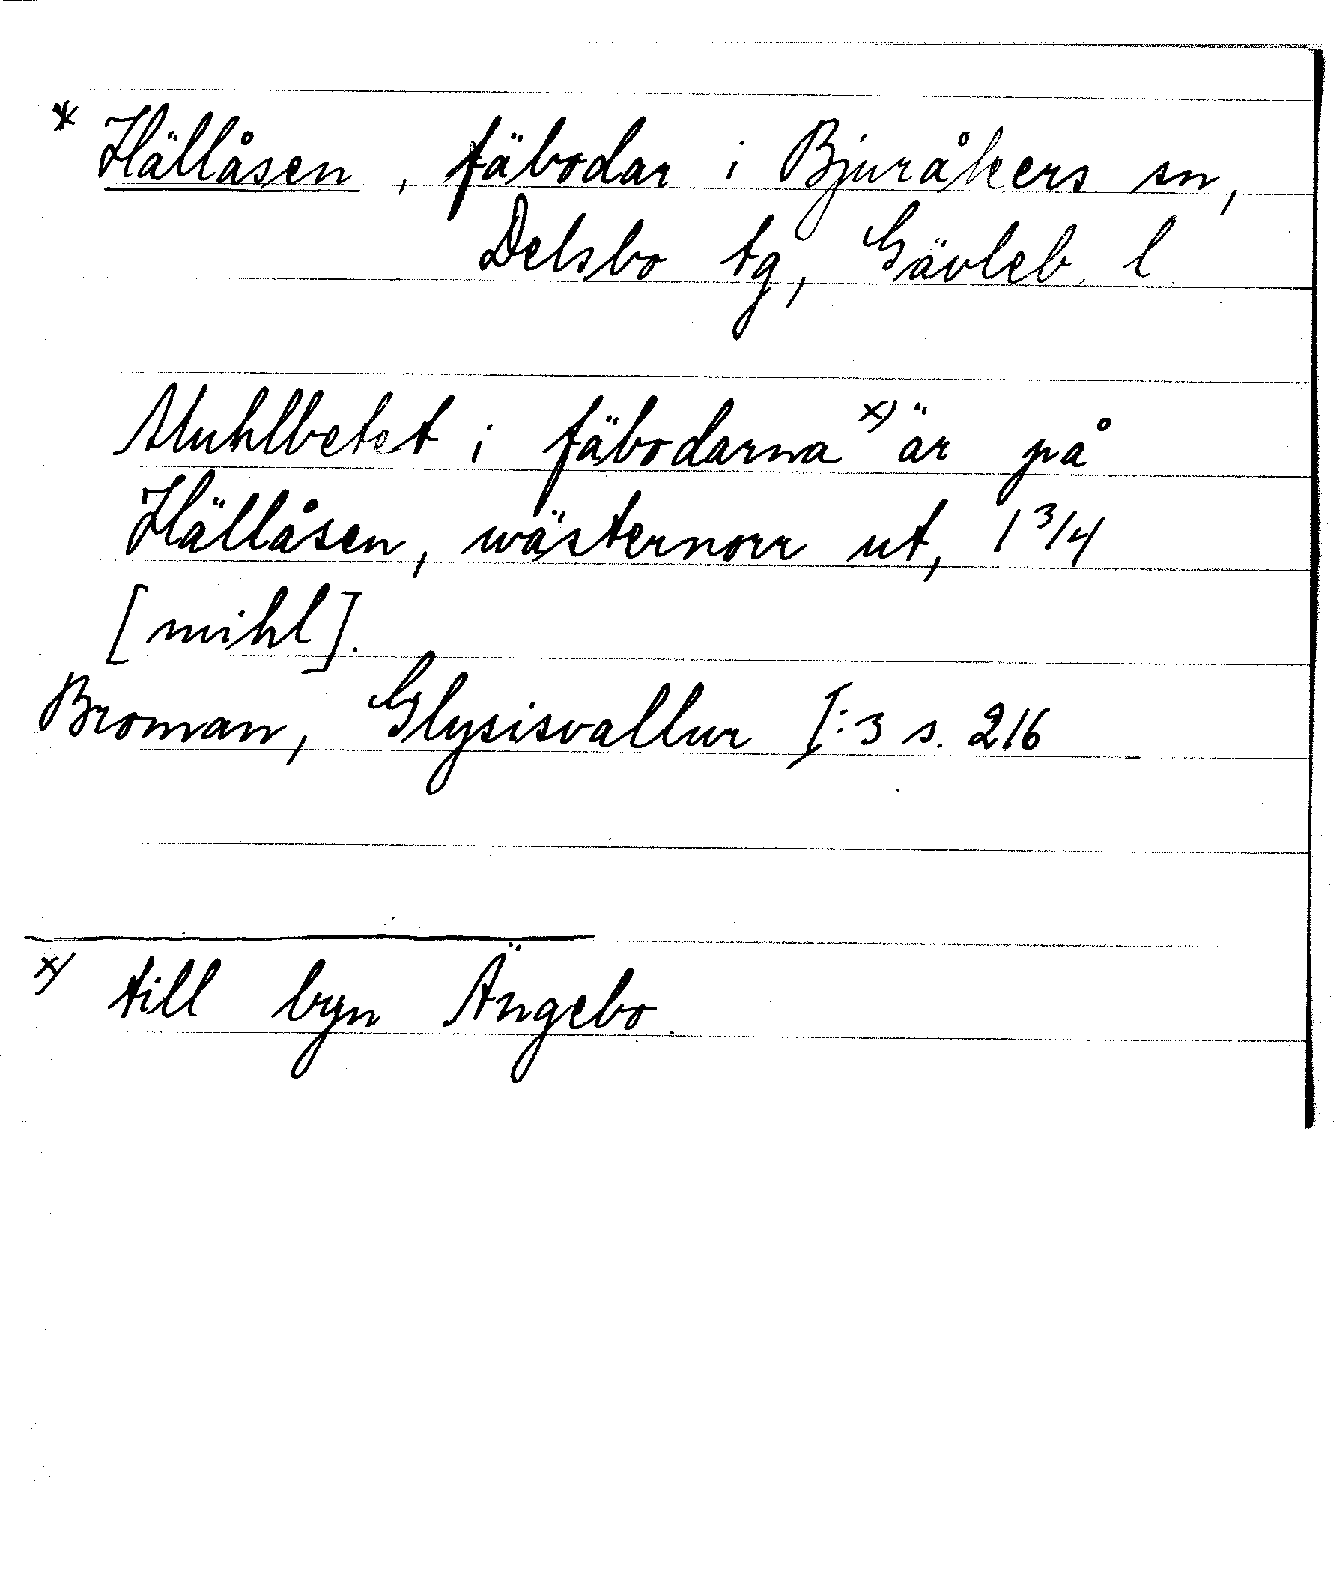 * Hällåsen, fäbodar i Bjuråkers sn,
Delsbo tg, Gävleb. l
Muhlbetet i fäbodarna x) är på
Hällåsen, wästernorr ut, 1 3/4
[mihl].
Broman, Glysisvallur I:3 s. 216
x) till byn Ängebo.